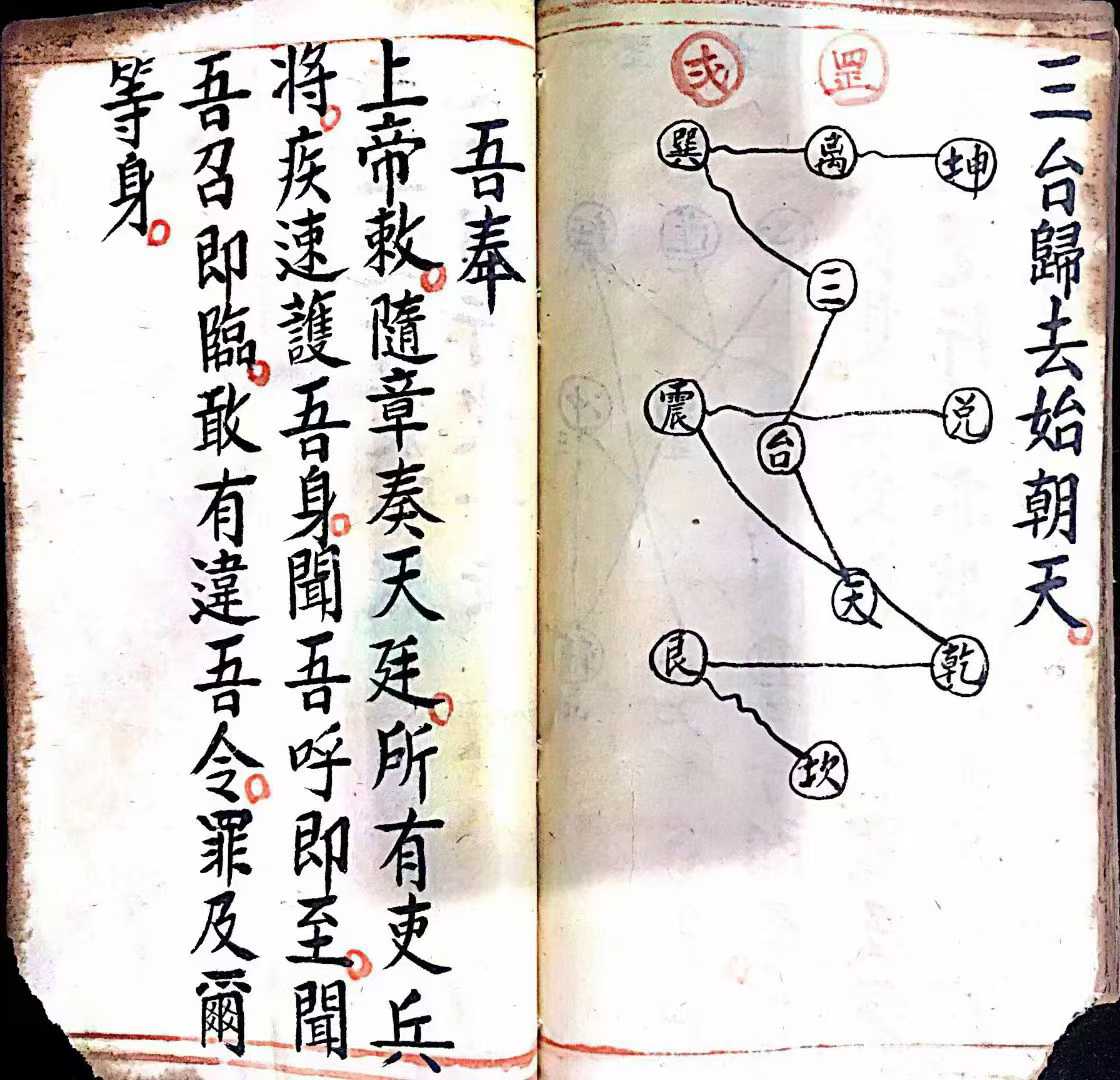 三台歸去始朝天。
罡
巽
离
坤
三
震
台
兑
天
艮
乾
坎
吾奉
上帝敕。隨章奏天廷。所有吏兵
將。疾速護吾身。聞吾呼即至。聞
吾召即臨。敢有違吾令。罪及爾
等身。